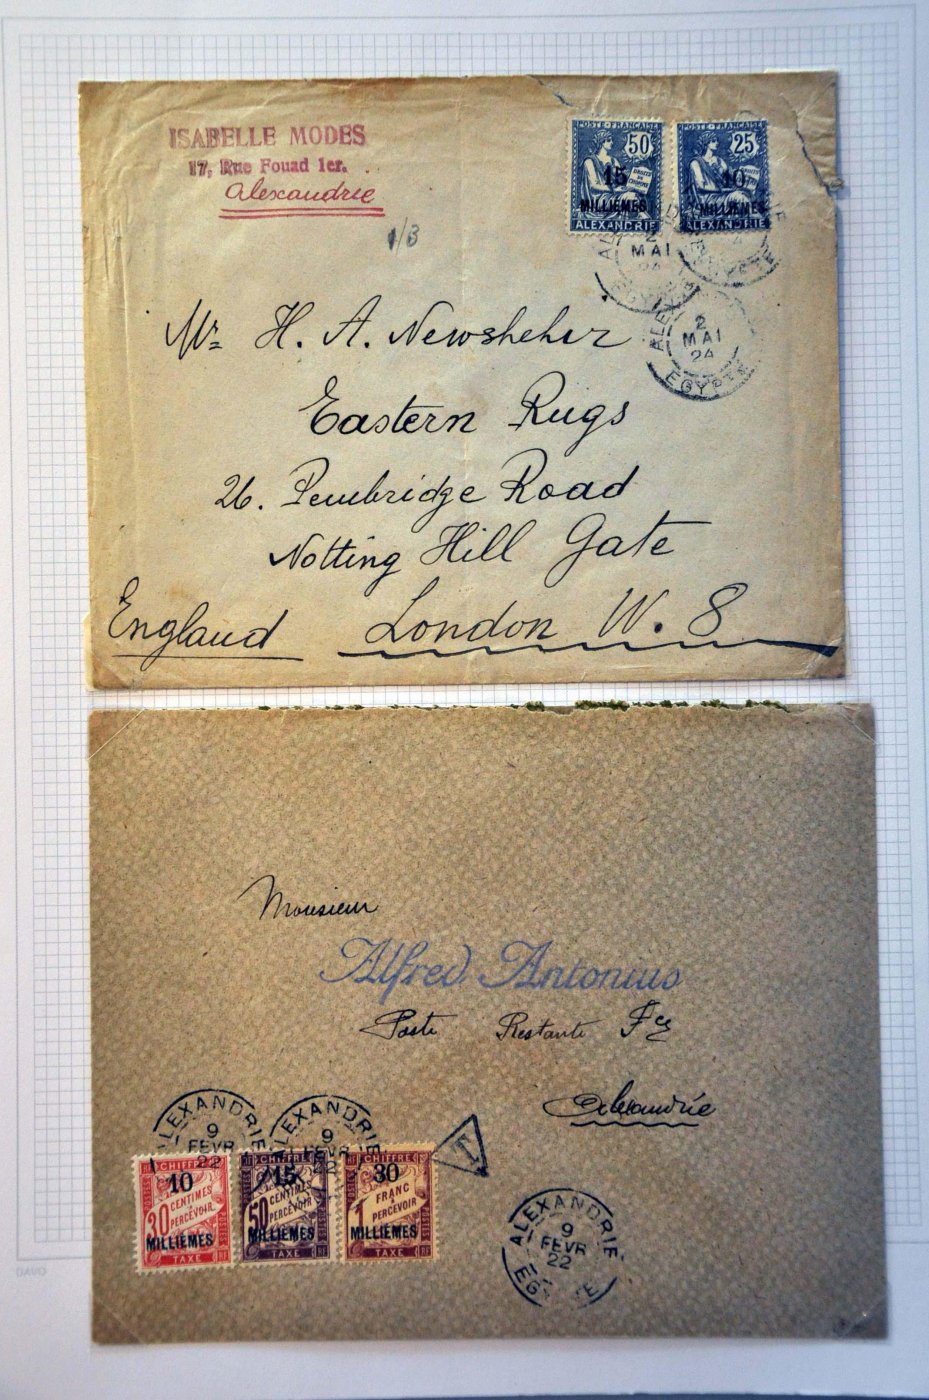 ISABELLE MODES
17, Rue Fouad 1er.
Alexandrie
1/3
POSTE FRANÇAISE
50
15
MILLIÈMES
ALEXANDRIE
POSTE FRANÇAISE
25
10
MILLIÈMES
ALEXANDRIE
MAI
ALEXANDRIE
2
MAI
24
EGYPTE
Mr H. A. Newsheher
Eastern Rugs
26. Pembridge Road
Notting Hill Gate
England London W. 8
Monsieur
Alfred Antonius
Poste Restante Fce
Alexandrie
ALEXANDRIE
9
FEVR
22
ALEXANDRIE
9
FEVR
T
CHIFFRE
10
30
CENTIMES
À PERCEVOIR
MILLIÈMES
TAXE
CHIFFRE
15
50
CENTIMES
À PERCEVOIR
MILLIÈMES
TAXE
CHIFFRE
30
1 FRANC
À PERCEVOIR
MILLIÈMES
TAXE
ALEXANDRIE
9
FEVR
22
EGYPTE